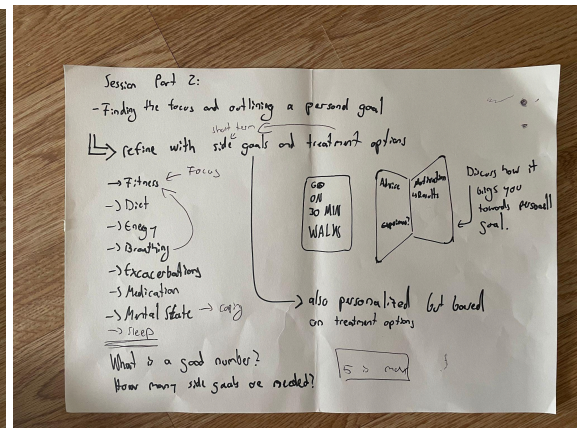 Session Part 2:
- Finding the focus and outlining a personal goal
short term
refine with side goals and treatment options
→ Fitness ← Focus
→ Diet
→ Energy
→ Breathing
→ Excacerbations
→ Medication
→ Mental State → coping
→ sleep
GO
ON
30 MIN
WALKS
Advise
experience?
Motivation
Results
Discuss how it
brings you
towards personal
goal.
also personalized but based
on treatment options
What is a good number?
How many side goals are needed?
5 is max